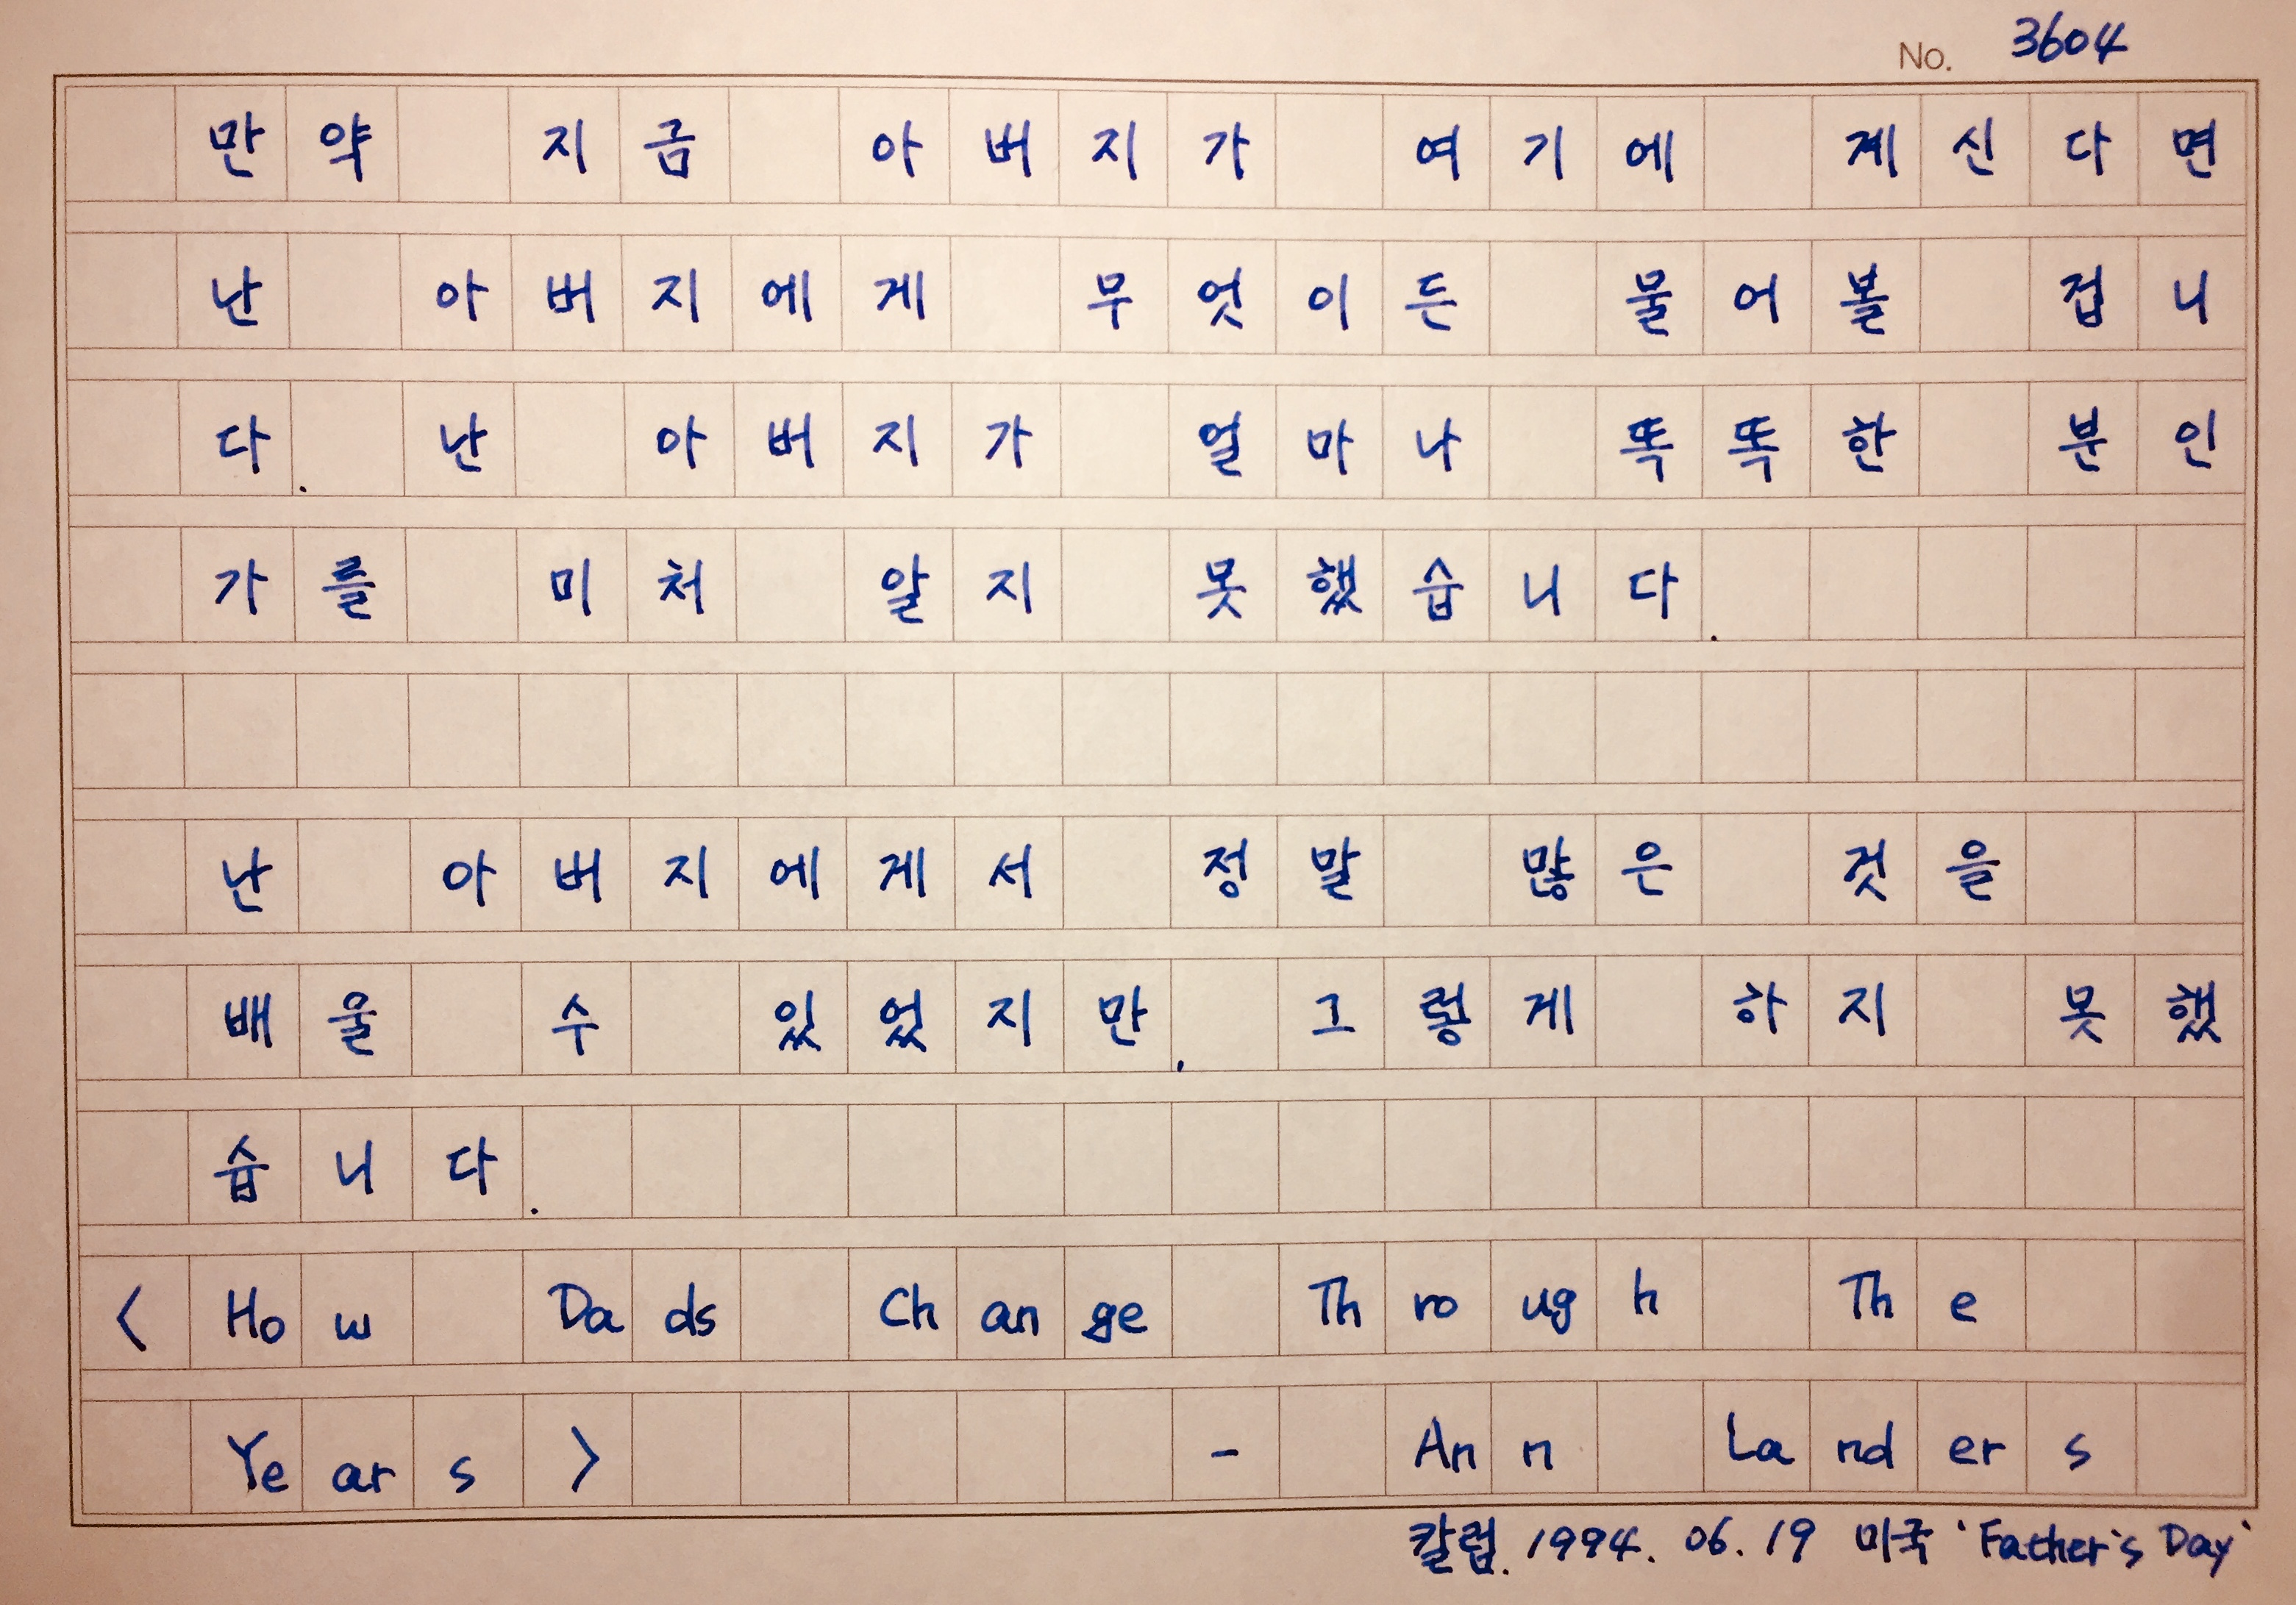 No. 3604
만약 지금 아버지가 여기에 계신다면
난 아버지에게 무엇이든 물어볼 겁니
다. 난 아버지가 얼마나 똑똑한 분인
가를 미처 알지 못했습니다.
난 아버지에게서 정말 많은 것을
배울 수 있었지만, 그렇게 하지 못했
습니다.
< How Dads Change Through The
Years > - Ann Landers
칼럼. 1994. 06. 19 미국 'Father's Day'